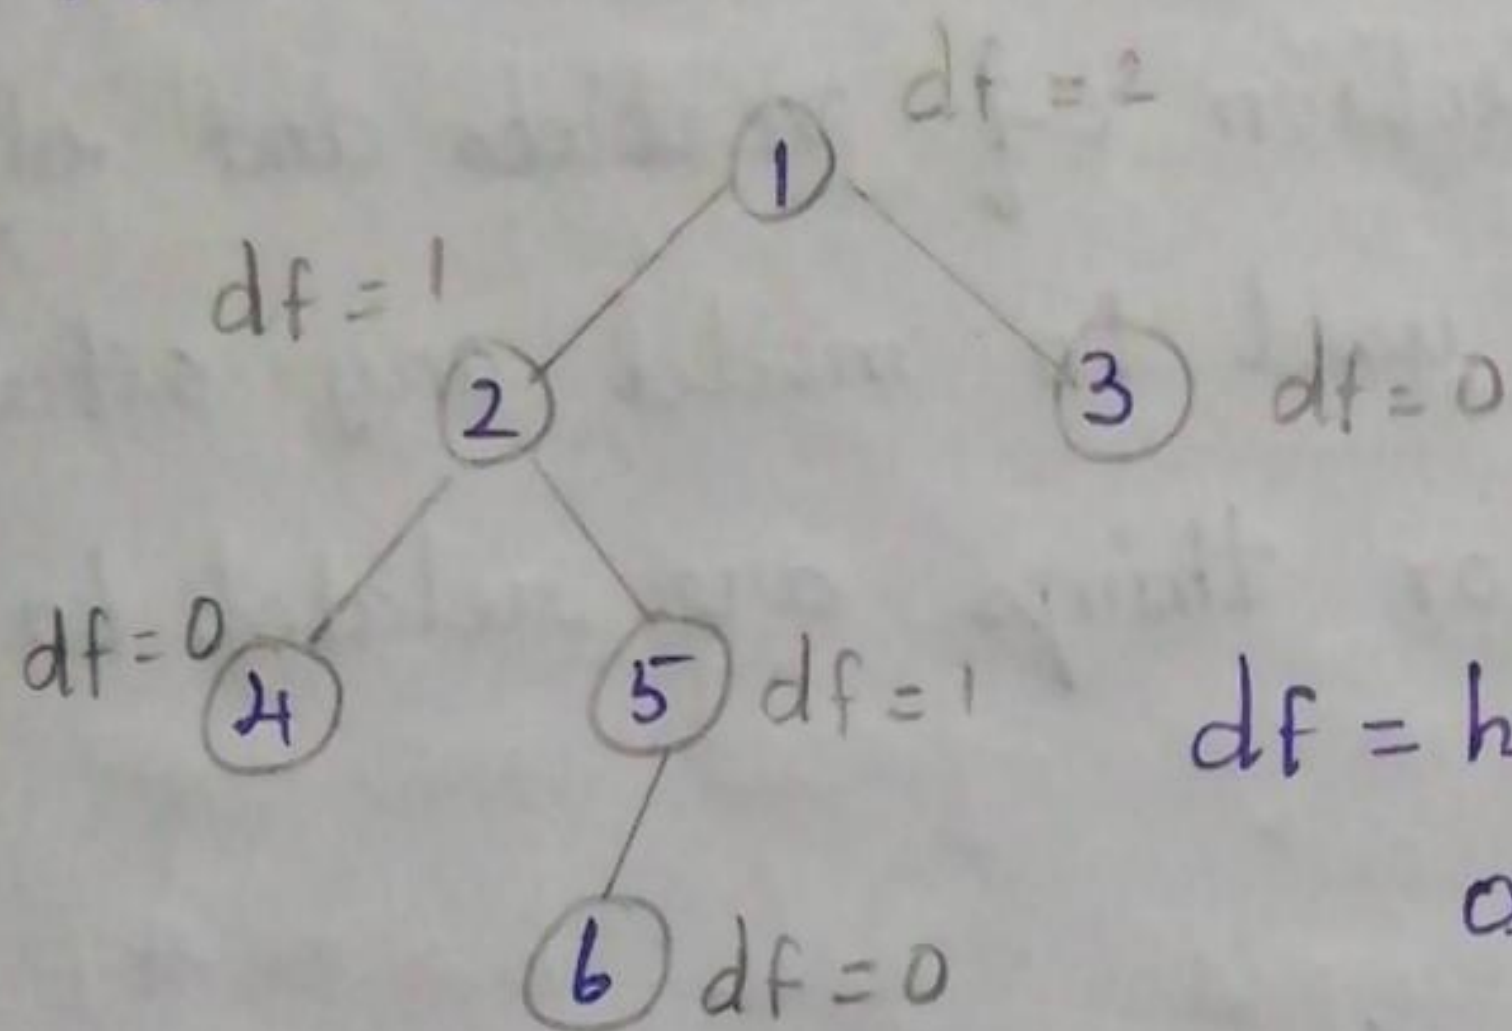 df = 2
1
df = 1
2
3
df = 0
df = 0
4
5
df = 1
df = h
6
df = 0